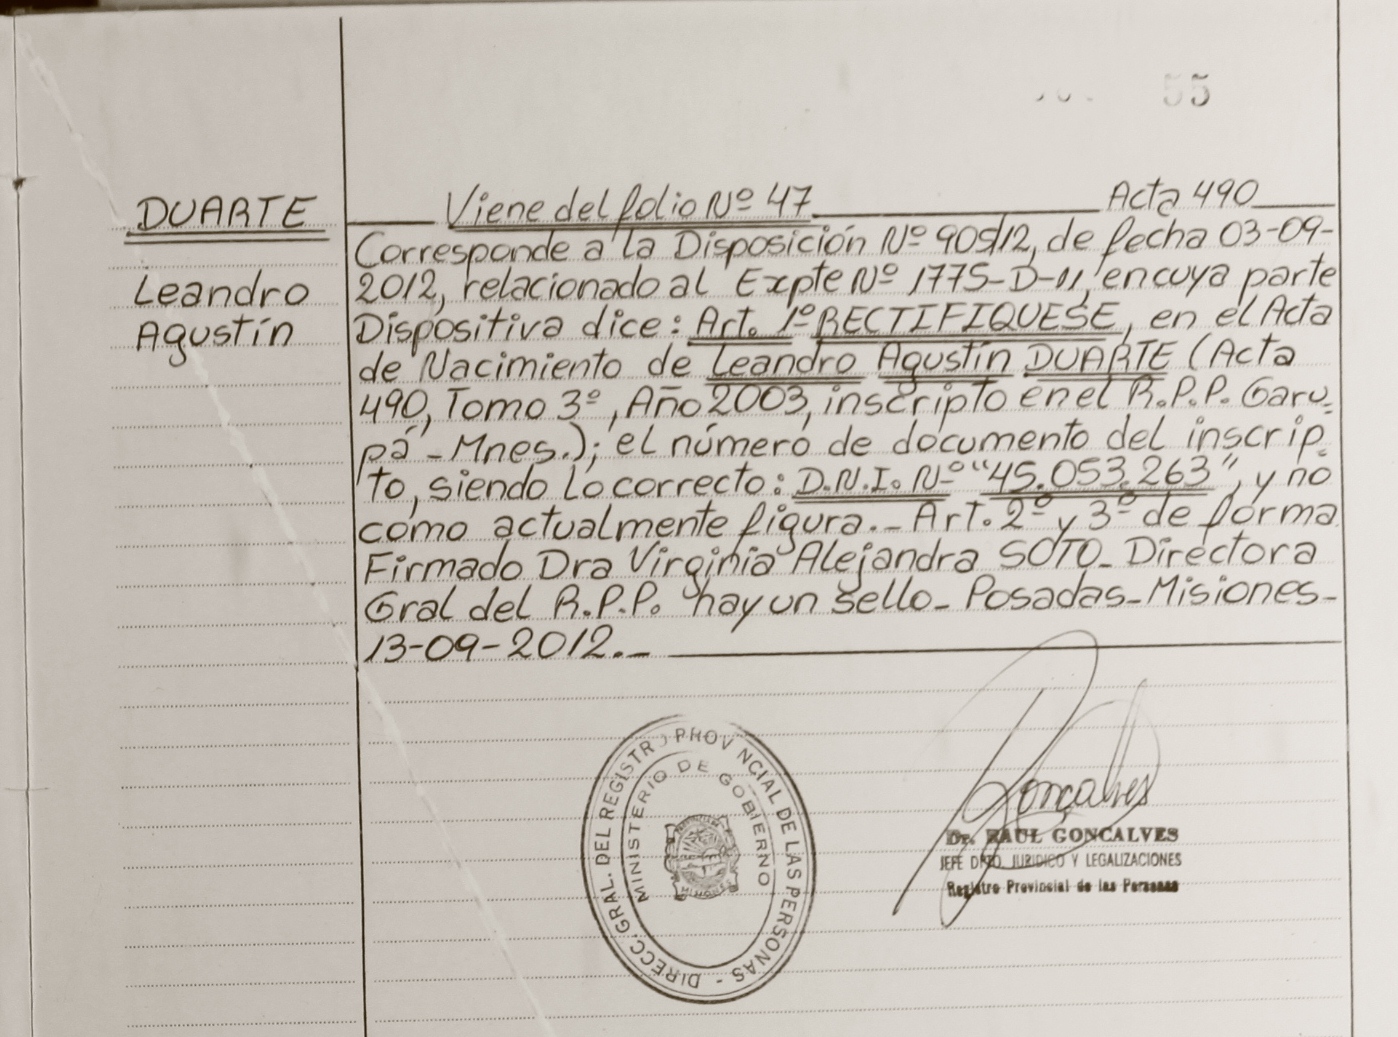 55
DUARTE
Leandro
Agustín
Viene del folio Nº 47 Acta 490
Corresponde a la Disposición Nº 905/12, de fecha 03-09-
2012, relacionado al Expte Nº 1775-D-11, en cuya parte
Dispositiva dice: Art. 1º RECTIFIQUESE, en el Acta
de Nacimiento de Leandro Agustín DUARTE (Acta
490, Tomo 3º, Año 2003, inscripto en el R.P.P. Garu-
pá - Mnes.); el número de documento del inscrip-
to, siendo lo correcto: D.N.I. Nº "45.053.263", y no
como actualmente figura.- Art. 2º y 3º de forma
Firmado Dra Virginia Alejandra SOTO- Directora
Gral del R.P.P. hay un sello- Posadas-Misiones-
13-09-2012.-
DIRECC. GRAL. DEL REGISTRO PROVINCIAL DE LAS PERSONAS -
MINISTERIO DE GOBIERNO
Goncalves
Dr. RAUL GONCALVES
JEFE DPTO. JURIDICO Y LEGALIZACIONES
Registro Provincial de las Personas